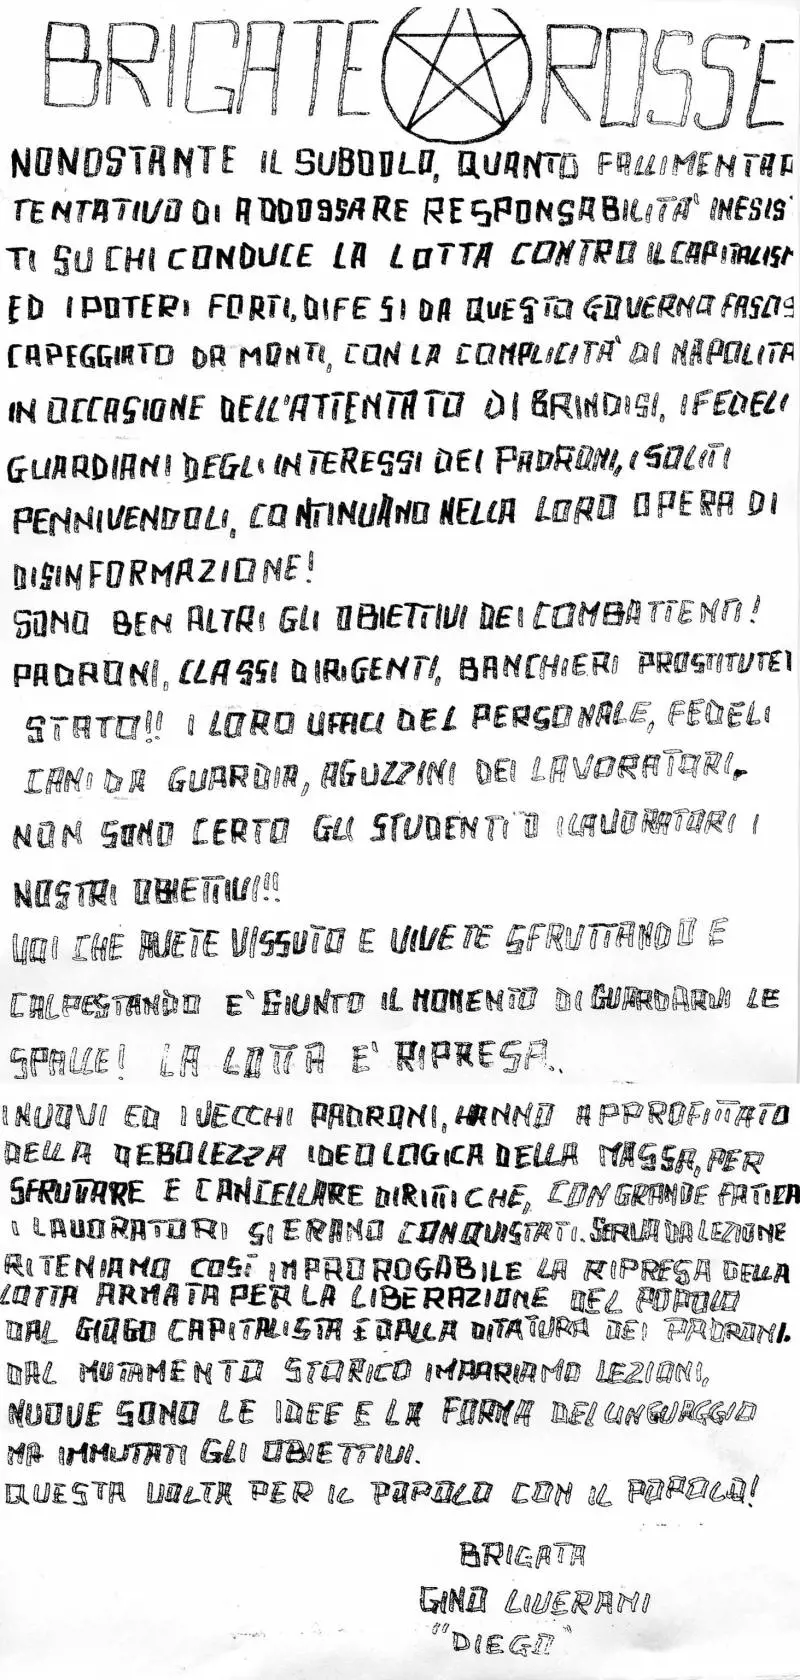 BRIGATE ROSSE
NONOSTANTE IL SUBDOLO, QUANTO FALLIMENTAR
TENTATIVO DI ADDOSSARE RESPONSABILITA' INESIS
TI SU CHI CONDUCE LA LOTTA CONTRO IL CAPITALISM
ED I POTERI FORTI, DIFESI DA QUESTO GOVERNO FASCIS
CAPEGGIATO DA MONTI, CON LA COMPLICITA' DI NAPOLITA
IN OCCASIONE DELL'ATTENTATO DI BRINDISI, I FEDELI
GUARDIANI DEGLI INTERESSI DEI PADRONI, I SOLITI
PENNIVENDOLI, CONTINUANO NELLA LORO OPERA DI
DISINFORMAZIONE!
SONO BEN ALTRI GLI OBIETTIVI DEI COMBATTENTI!
PADRONI, CLASSI DIRIGENTI, BANCHIERI PROSTITUTE
STATO!! I LORO UFFICI DEL PERSONALE, FEDELI
CANI DA GUARDIA, AGUZZINI DEI LAVORATORI.
NON SONO CERTO GLI STUDENTI O I LAVORATORI I
NOSTRI OBIETTIVI!!
VOI CHE AVETE VISSUTO E VIVETE SFRUTTANDO E
CALPESTANDO E' GIUNTO IL MOMENTO DI GUARDARVI LE
SPALLE! LA LOTTA E' RIPRESA..
I NUOVI ED I VECCHI PADRONI, HANNO APPROFITTATO
DELLA DEBOLEZZA IDEOLOGICA DELLA MASSA, PER
SFRUTTARE E CANCELLARE DIRITTI CHE, CON GRANDE FATICA
I LAVORATORI SI ERANO CONQUISTATI. SERVA DA LEZIONE
RITENIAMO COSI' IMPROROGABILE LA RIPRESA DELLA
LOTTA ARMATA PER LA LIBERAZIONE DEL POPOLO
DAL GIOGO CAPITALISTA E DALLA DITATURA DEI PADRONI.
DAL MUTAMENTO STORICO IMPARIAMO LEZIONI,
NUOVE SONO LE IDEE E LA FORMA DEI LINGUAGGIO
MA IMMUTATI GLI OBIETTIVI.
QUESTA VOLTA PER IL POPOLO CON IL POPOLO!
BRIGATA
GINO LIVERANI
"DIEGO"